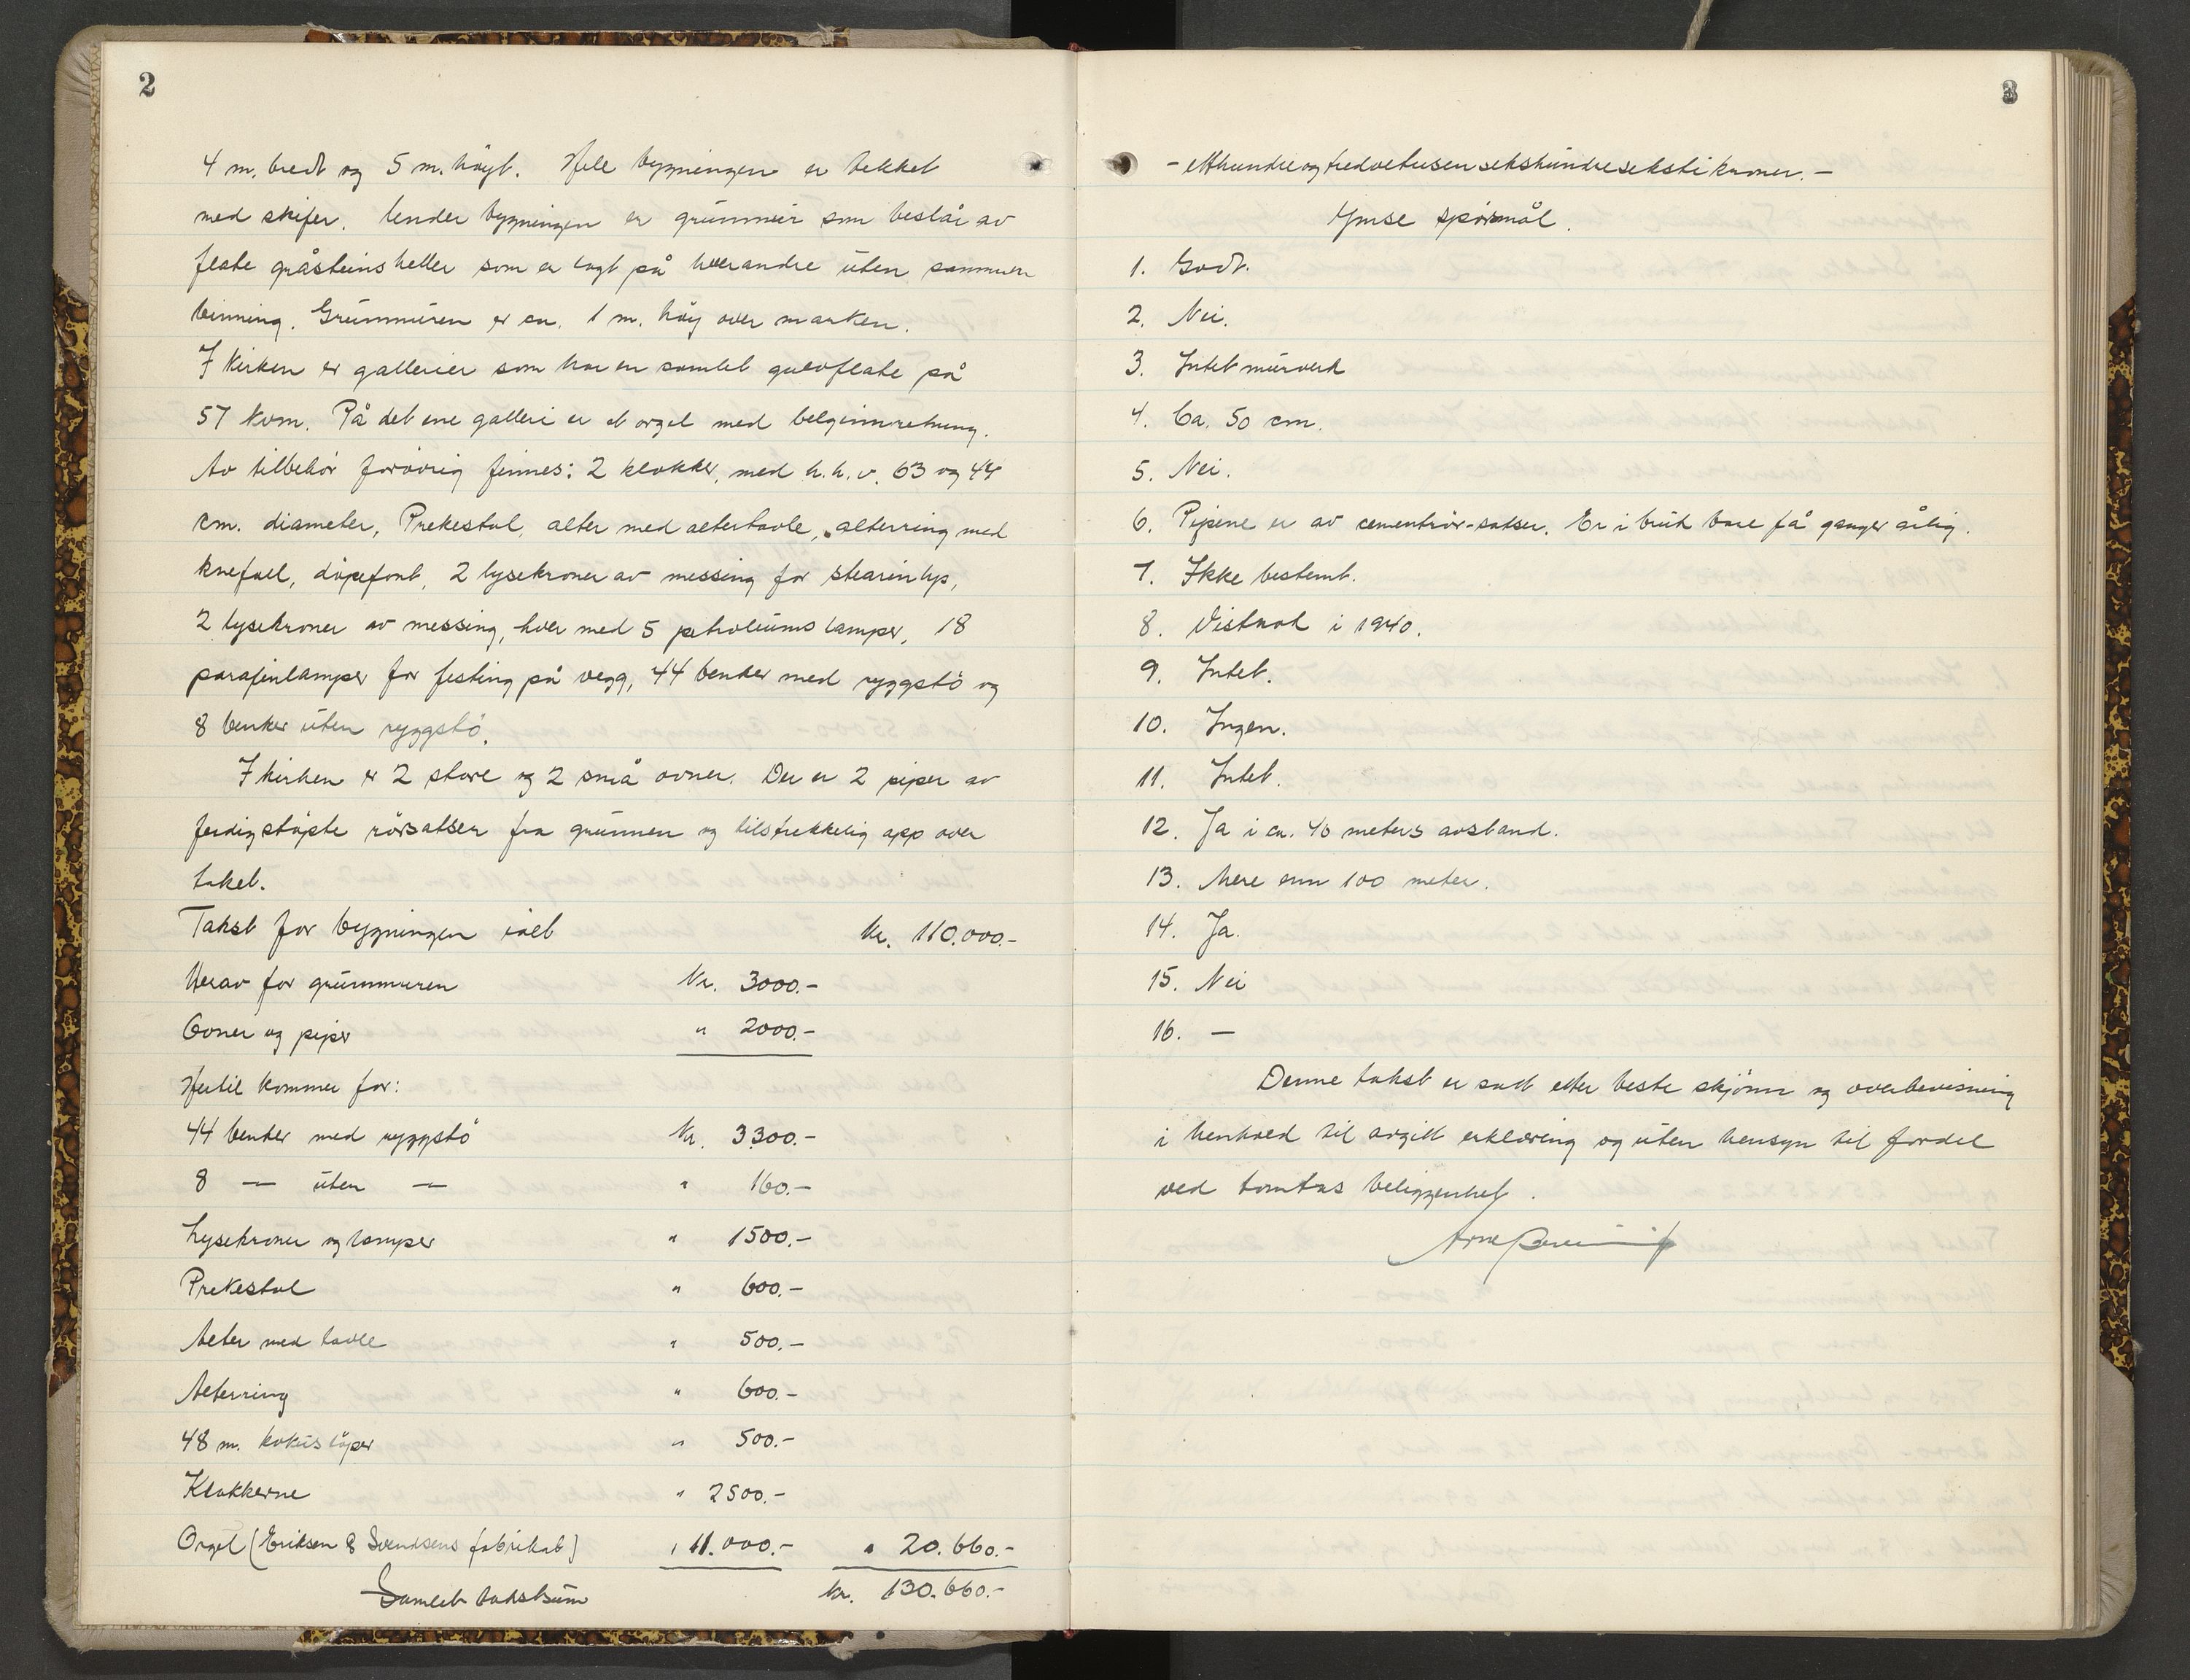 2
4 m. bredt og 5 m. höyt. Hele bygningen er tekket
med skifer. Under bygningen er grunnmur som består av
flate gråsteinsheller som er lagt på hverandre uten sammen
binning. Grunnmuren er ca. 1 m. höy over marken.
I kirken er gallerier som har en samlet gulvflate på
57 kvm. På det ene galleri er et orgel med belginnretning.
Av tilbehör forövrig finnes: 2 klokker, med h.h.v. 63 og 44
cm. diameter, Prekestol, alter med altertavle, alterring med
knefall, döpefont, 2 lysekroner av messing for stearinlys,
2 lysekroner av messing, hver med 5 petroleums lamper, 18
parafinlamper for festing på vegg, 44 benker med ryggstö og
8 benker uten ryggstö.
I kirken er 2 store og 2 små ovner. Der er 2 piper av
ferdigstöpte rörsatser fra grunnen og tilstrekkelig opp over
taket.
Takst for bygningen ialt kr. 110.000.-
Herav for grunnmuren Kr. 3000.-
Ovner og piper " 2000.-
Hertil kommer for:
44 benker med ryggstö Kr. 3300.-
8 — uten — " 160.-
Lysekroner og lamper " 1500.-
Prekestol " 600.-
Alter med tavle " 500.-
Alterring " 600.-
48 m. kokuslöper " 500.-
Klokkerne " 2500.-
Orgel (Eriksen & Svendsens fabrikat) " 11.000.- " 20.660.-
Samlet takstsum kr. 130.660.-
3
- etthundreogtredvetusensekshundresekstikroner. -
Ymse spörsmål.
1. Godt.
2. Nei.
3. Intet murverk
4. Ca. 50 cm.
5. Nei.
6. Pipene er av cementrör-satser. Er i bruk bare få ganger årlig.
7. Ikke bestemt.
8. Vistnok i 1940.
9. Intet.
10. Ingen.
11. Intet.
12. Ja i ca. 40 meters avstand.
13. Mere enn 100 meter.
14. Ja.
15. Nei
16. —
Denne takst er satt etter beste skjönn og overbevisning
i henhold til avgitt erklæring og uten hensyn til fordel
ved tomtens beliggenhet.
Arne